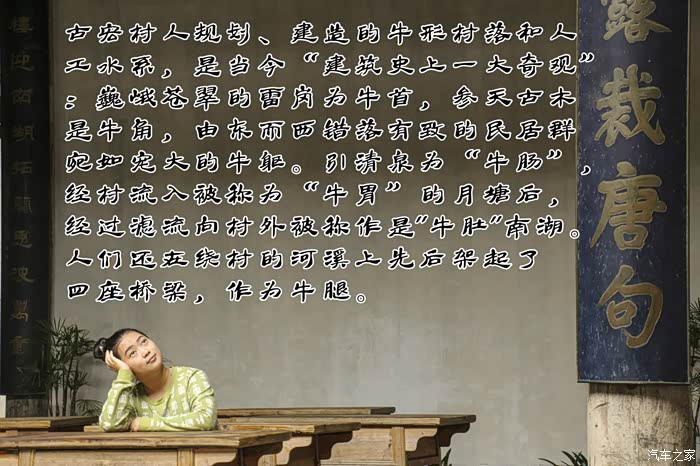 古宏村人规划、建造的牛形村落和人
工水系，是当今“建筑史上一大奇观”
：巍峨苍翠的雷岗为牛首，参天古木
是牛角，由东而西错落有致的民居群
宛如宠大的牛躯。引清泉为“牛肠”，
经村流入被称为“牛胃”的月塘后，
经过滤流向村外被称作是"牛肚"南湖。
人们还在绕村的河溪上先后架起了
四座桥梁，作为牛腿。
露裁唐句
汽车之家